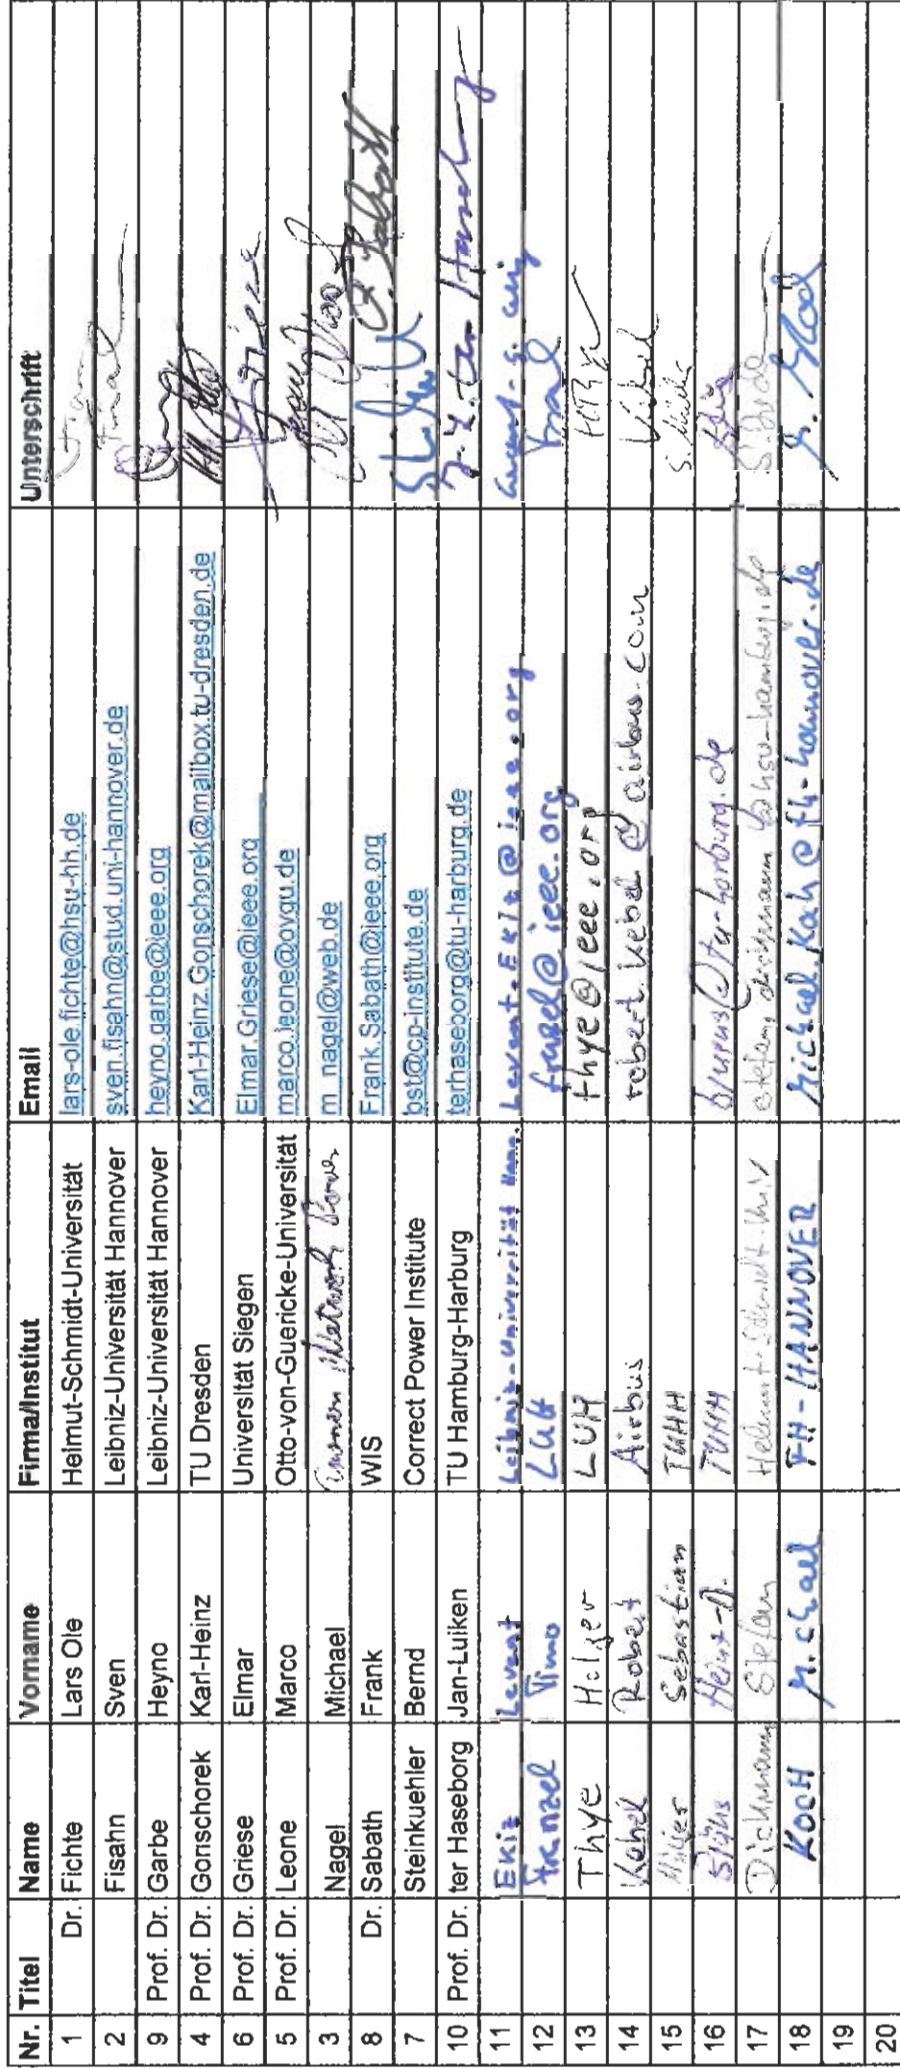 Nr. Titel Name Vorname Firma/Institut Email Unterschrift
1 Dr. Fichte Lars Ole Helmut-Schmidt-Universität lars-ole.fichte@hsu-hh.de
2 Fisahn Sven Leibniz-Universität Hannover sven.fisahn@stud.uni-hannover.de
9 Prof. Dr. Garbe Heyno Leibniz-Universität Hannover heyno.garbe@ieee.org
4 Prof. Dr. Gonschorek Karl-Heinz TU Dresden Karl-Heinz.Gonschorek@mailbox.tu-dresden.de
6 Prof. Dr. Griese Elmar Universität Siegen Elmar.Griese@ieee.org
5 Prof. Dr. Leone Marco Otto-von-Guericke-Universität marco.leone@ovgu.de
3 Nagel Michael m_nagel@web.de
8 Dr. Sabath Frank WIS Frank.Sabath@ieee.org
7 Steinkuehler Bernd Correct Power Institute bst@cp-institute.de
10 Prof. Dr. ter Haseborg Jan-Luiken TU Hamburg-Harburg terhaseborg@tu-harburg.de
11 Ekiz Levent Leibniz-Universität Hann. Levent.Ekiz@ieee.org
12 Frenzel Timo LUH frenzel@ieee.org
13 Thye Holger LUH thye@ieee.org
14 Kebel Robert Airbus robert.kebel@airbus.com
15 Sebastian TUHH
16 Brüns Heinz-D. TUHH bruens@tu-harburg.de
17 Dickmann Stefan Helmut-Schmidt-Univ stefan.dickmann@hsu-hamburg.de
18 KOCH Michael FH-HANNOVER Michael.Koch@fh-hannover.de
19
20